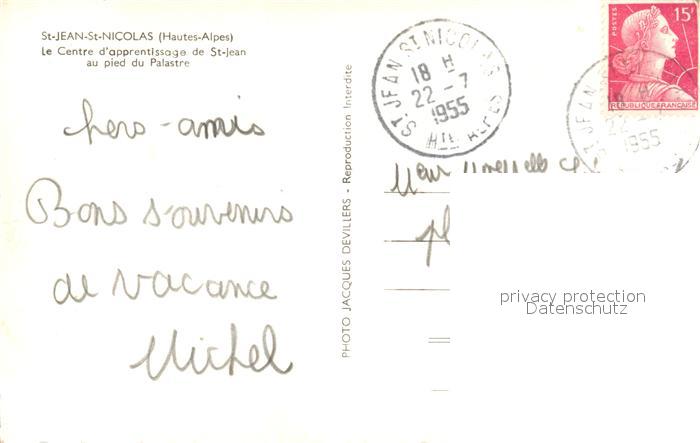 St-JEAN-St-NICOLAS (Hautes-Alpes)
Le Centre d'apprentissage de St-Jean
au pied du Palastre
hers-amis
Bons souvenirs
de vacance
Michel
PHOTO JACQUES DEVILLERS - Reproduction Interdite
ST JEAN ST NICOLAS
18 H
22 - 7
1955
HTES ALPES
POSTES
15F
REPUBLIQUE FRANÇAISE
ST JEAN
H
22
1955
privacy protection
Datenschutz